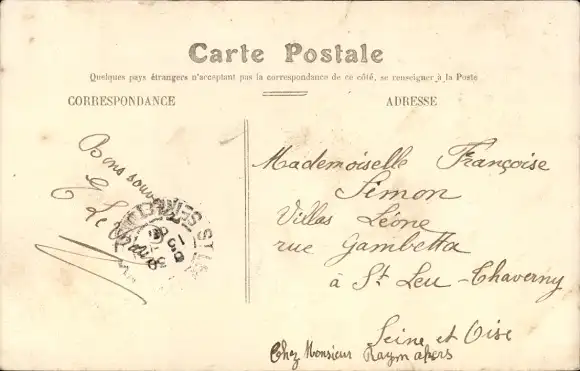 Carte Postale
Quelques pays étrangers n'acceptant pas la correspondance de ce côté, se renseigner à la Poste
CORRESPONDANCE
ADRESSE
Bons
Mademoiselle Françoise
Simon
Villas Léone
rue Gambetta
à St Leu-Chaverny
Seine et Oise
Chez Monsieur Raymakers